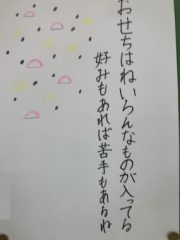 おせちはねいろんなものが入ってる
好みもあれば苦手もあるね